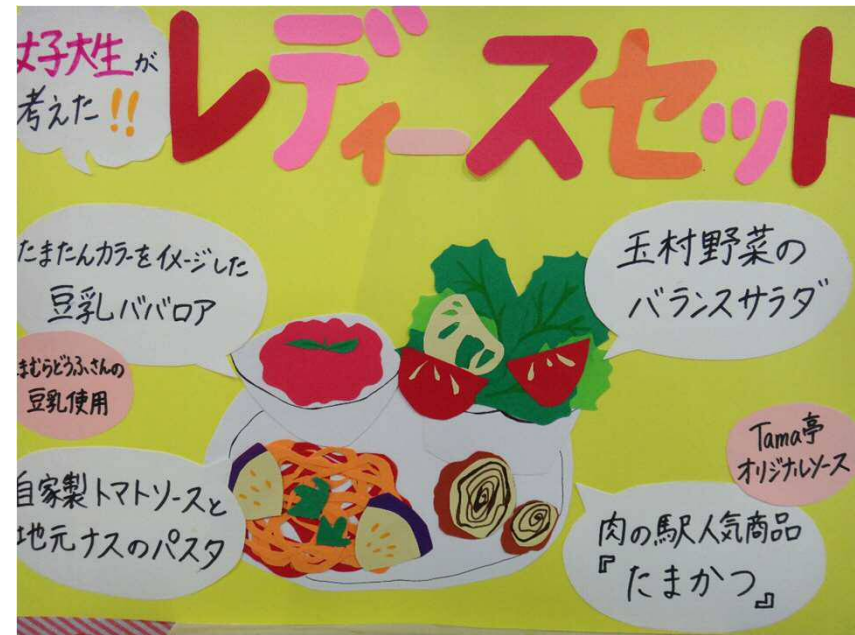 女子大生が
考えた!!
レディースセット
たまたんカラーをイメージした
豆乳ババロア
まむらとうふさんの
豆乳使用
玉村野菜の
バランスサラダ
自家製トマトソースと
地元ナスのパスタ
Tama亭
オリジナルソース
肉の駅人気商品
『たまかつ』